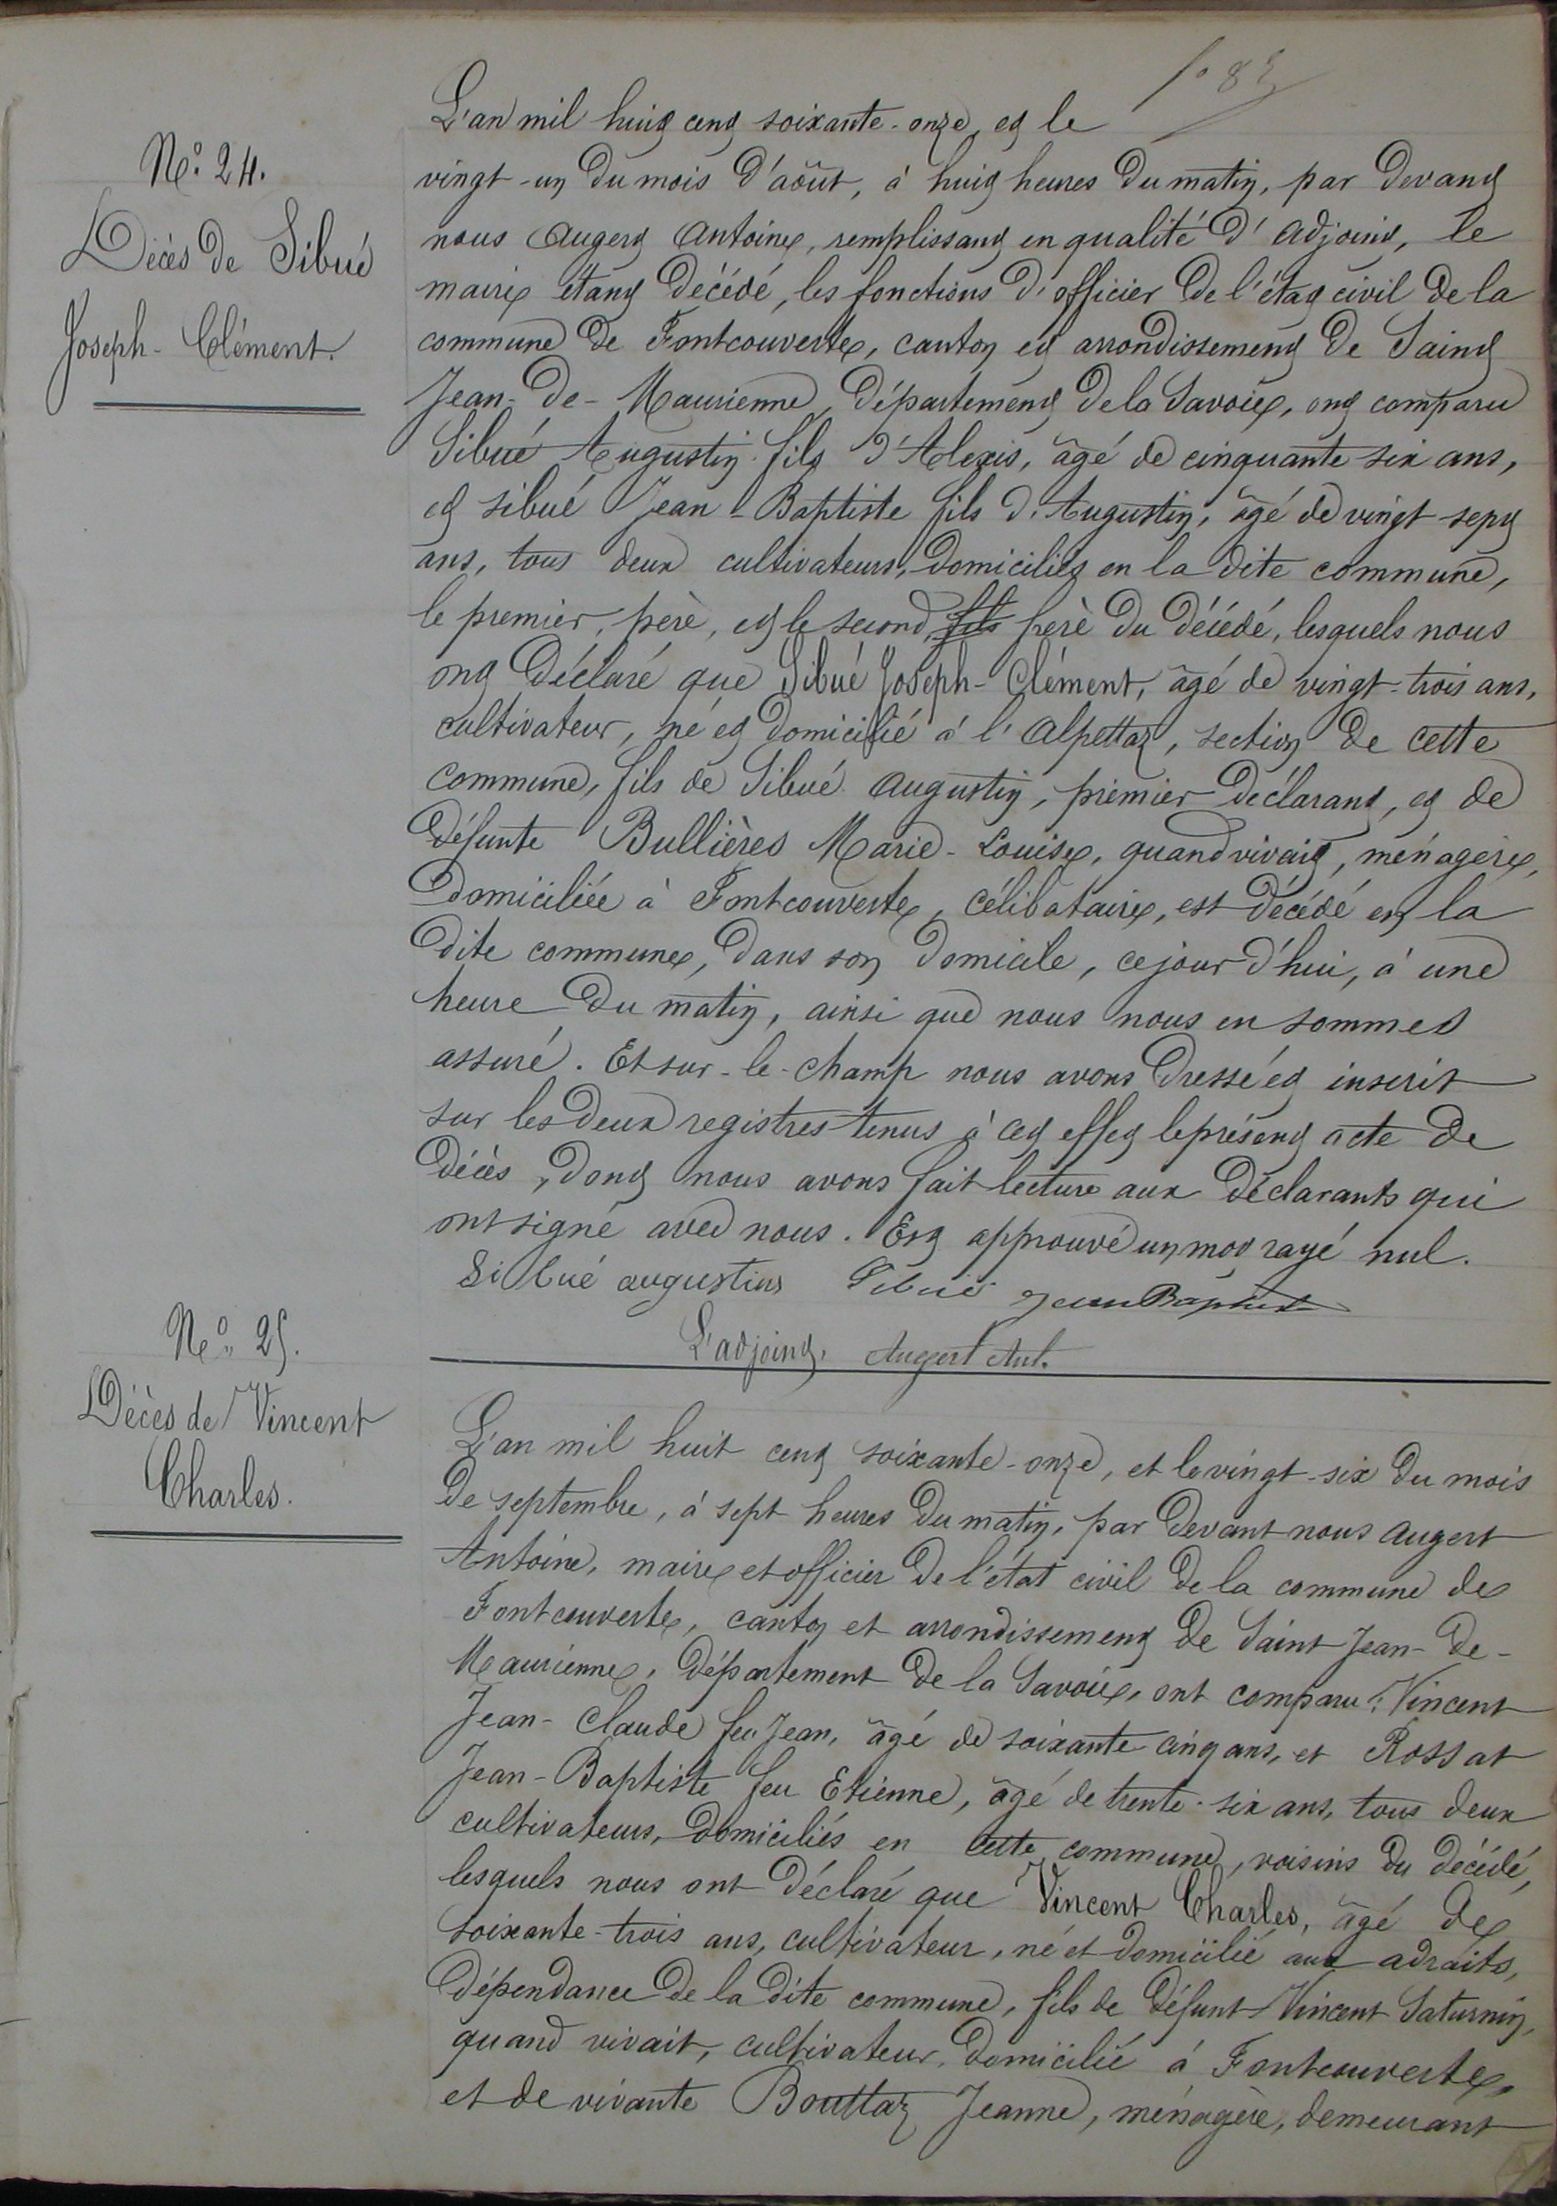 N.° 24.
Décès de Sibué
Joseph-Clément.
L'an mil huit cent soixante-onze, et le
vingt-un du mois d'août, à huit heures du matin, par devant
nous Augert Antoine, remplissant en qualité d'adjoint, le
maire étant décédé, les fonctions d'officier de l'état civil de la
commune de Fontcouverte, canton et arrondissement de Saint
Jean-de-Maurienne, département de la Savoie, ont comparu
Sibué Augustin fils d'Alexis, âgé de cinquante six ans,
et sibué Jean-Baptiste fils d'Augustin, âgé de vingt-sept
ans, tous deux cultivateurs, domiciliés en la dite commune,
le premier, père, et le second, fils frère du décédé, lesquels nous
ont déclaré que Sibué Joseph-Clément, âgé de vingt-trois ans,
cultivateur, né et domicilié à l'Alpettaz, section de cette
commune, fils de Sibué Augustin, premier déclarant, et de
défunte Bullières Marie-Louise, quand vivait, ménagère,
domiciliée à Fontcouverte, célibataire, est décédé en la
dite commune, dans son domicile, cejour d'hui, à une
heure du matin, ainsi que nous nous en sommes
assuré. Et sur-le-champ nous avons dressé et inscrit
sur les deux registres tenus à cet effet le présent acte de
décès, dont nous avons fait lecture aux déclarants qui
ont signé avec nous. Est approuvé un mot rayé nul.
Sibué augustin Sibué Jean Baptiste
L'adjoint, Augert Ant.
N.° 25.
Décès de Vincent
Charles.
L'an mil huit cent soixante-onze, et le vingt-six du mois
de septembre, à sept heures du matin, par devant nous Augert
Antoine, maire et officier de l'état civil de la commune de
Fontcouverte, canton et arrondissement de Saint Jean-de-
Maurienne, département de la Savoie, ont comparu: Vincent
Jean-Claude feu Jean, âgé de soixante cinq ans, et Rossat
Jean-Baptiste feu Etienne, âgé de trente-six ans, tous deux
cultivateurs, domiciliés en cette commune, voisins du décédé,
lesquels nous ont déclaré que Vincent Charles, âgé de
soixante-trois ans, cultivateur, né et domicilié aux adraits,
dépendance de la dite commune, fils de défunt Vincent Saturnin,
quand vivait, cultivateur, domicilié à Fontcouverte,
et de vivante Bouttaz Jeanne, ménagère, demeurant